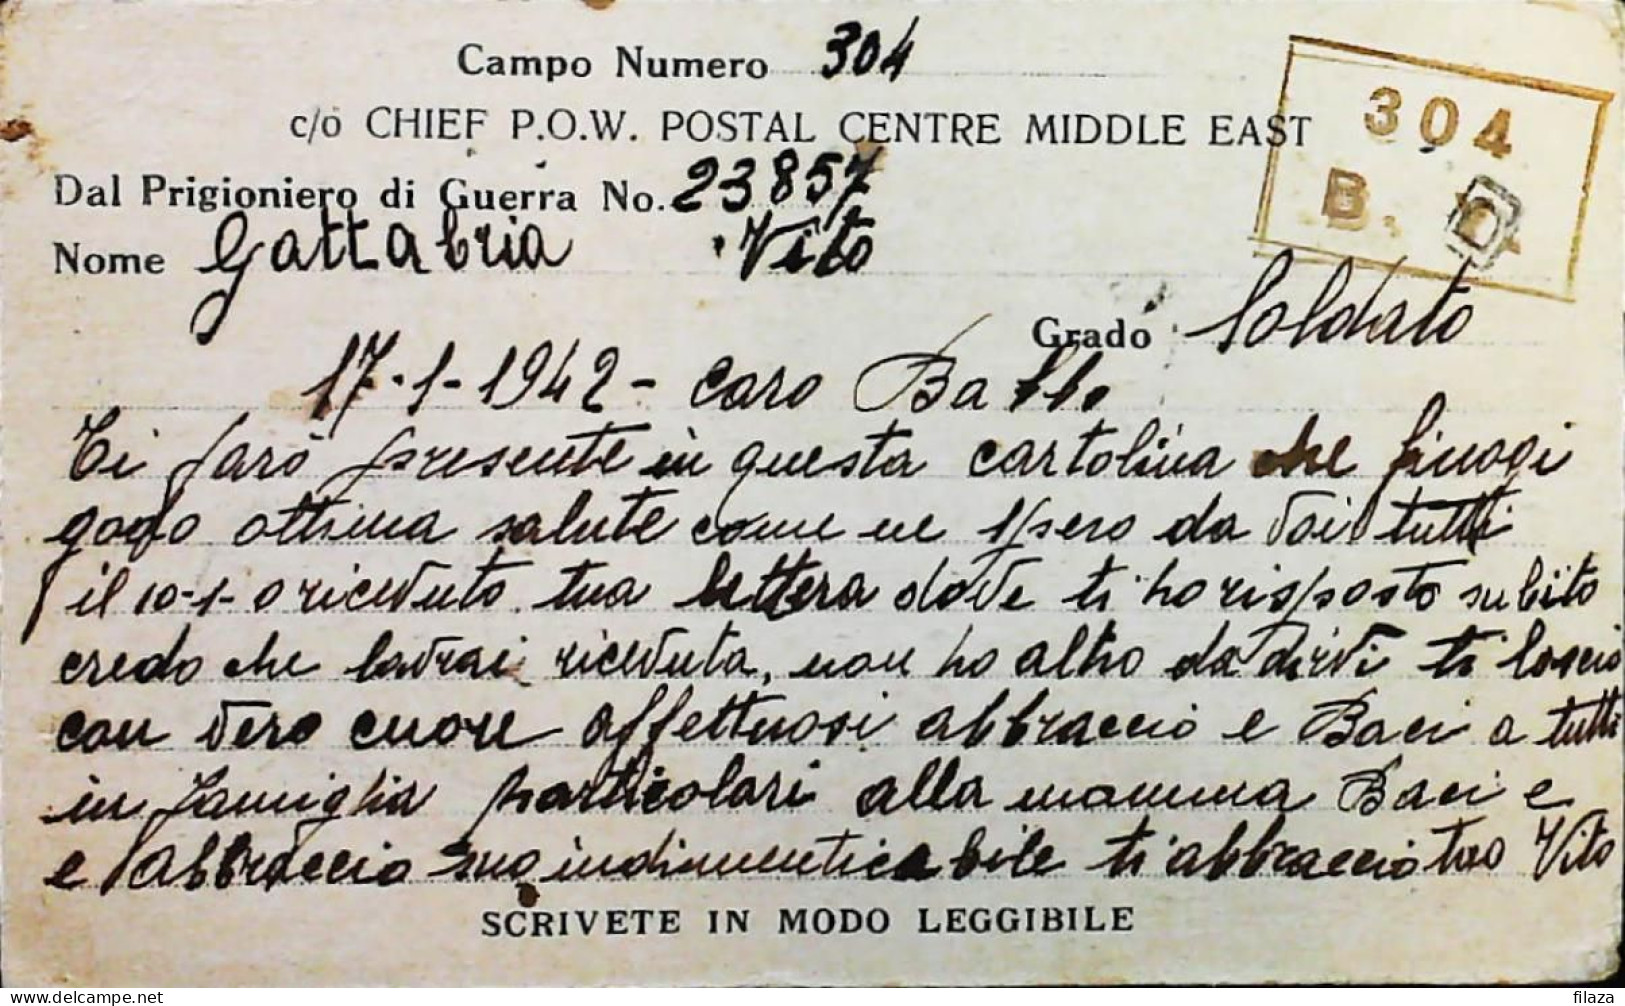 Campo Numero 304
c/o CHIEF P.O.W. POSTAL CENTRE MIDDLE EAST
304
B. D.
Dal Prigioniero di Guerra No. 23857
Nome Gattabria Vito
Grado Soldato
17-1-1942- caro Babbo
Ti farò presente in questa cartolina che finogi
godo ottima salute come ne spero da voi tutti
il 10-1- o ricevuto tua lettera dove ti ho risposto subito
credo che lavrai ricevuta, non ho altro da dirvi ti lascio
con vero cuore affettuosi abbraccio e Baci a tutti
in famiglia particolari alla mamma Baci e
e abbraccio suo indimenticabile ti abbraccio tuo Vito
SCRIVETE IN MODO LEGGIBILE
delcampe.net
filaza